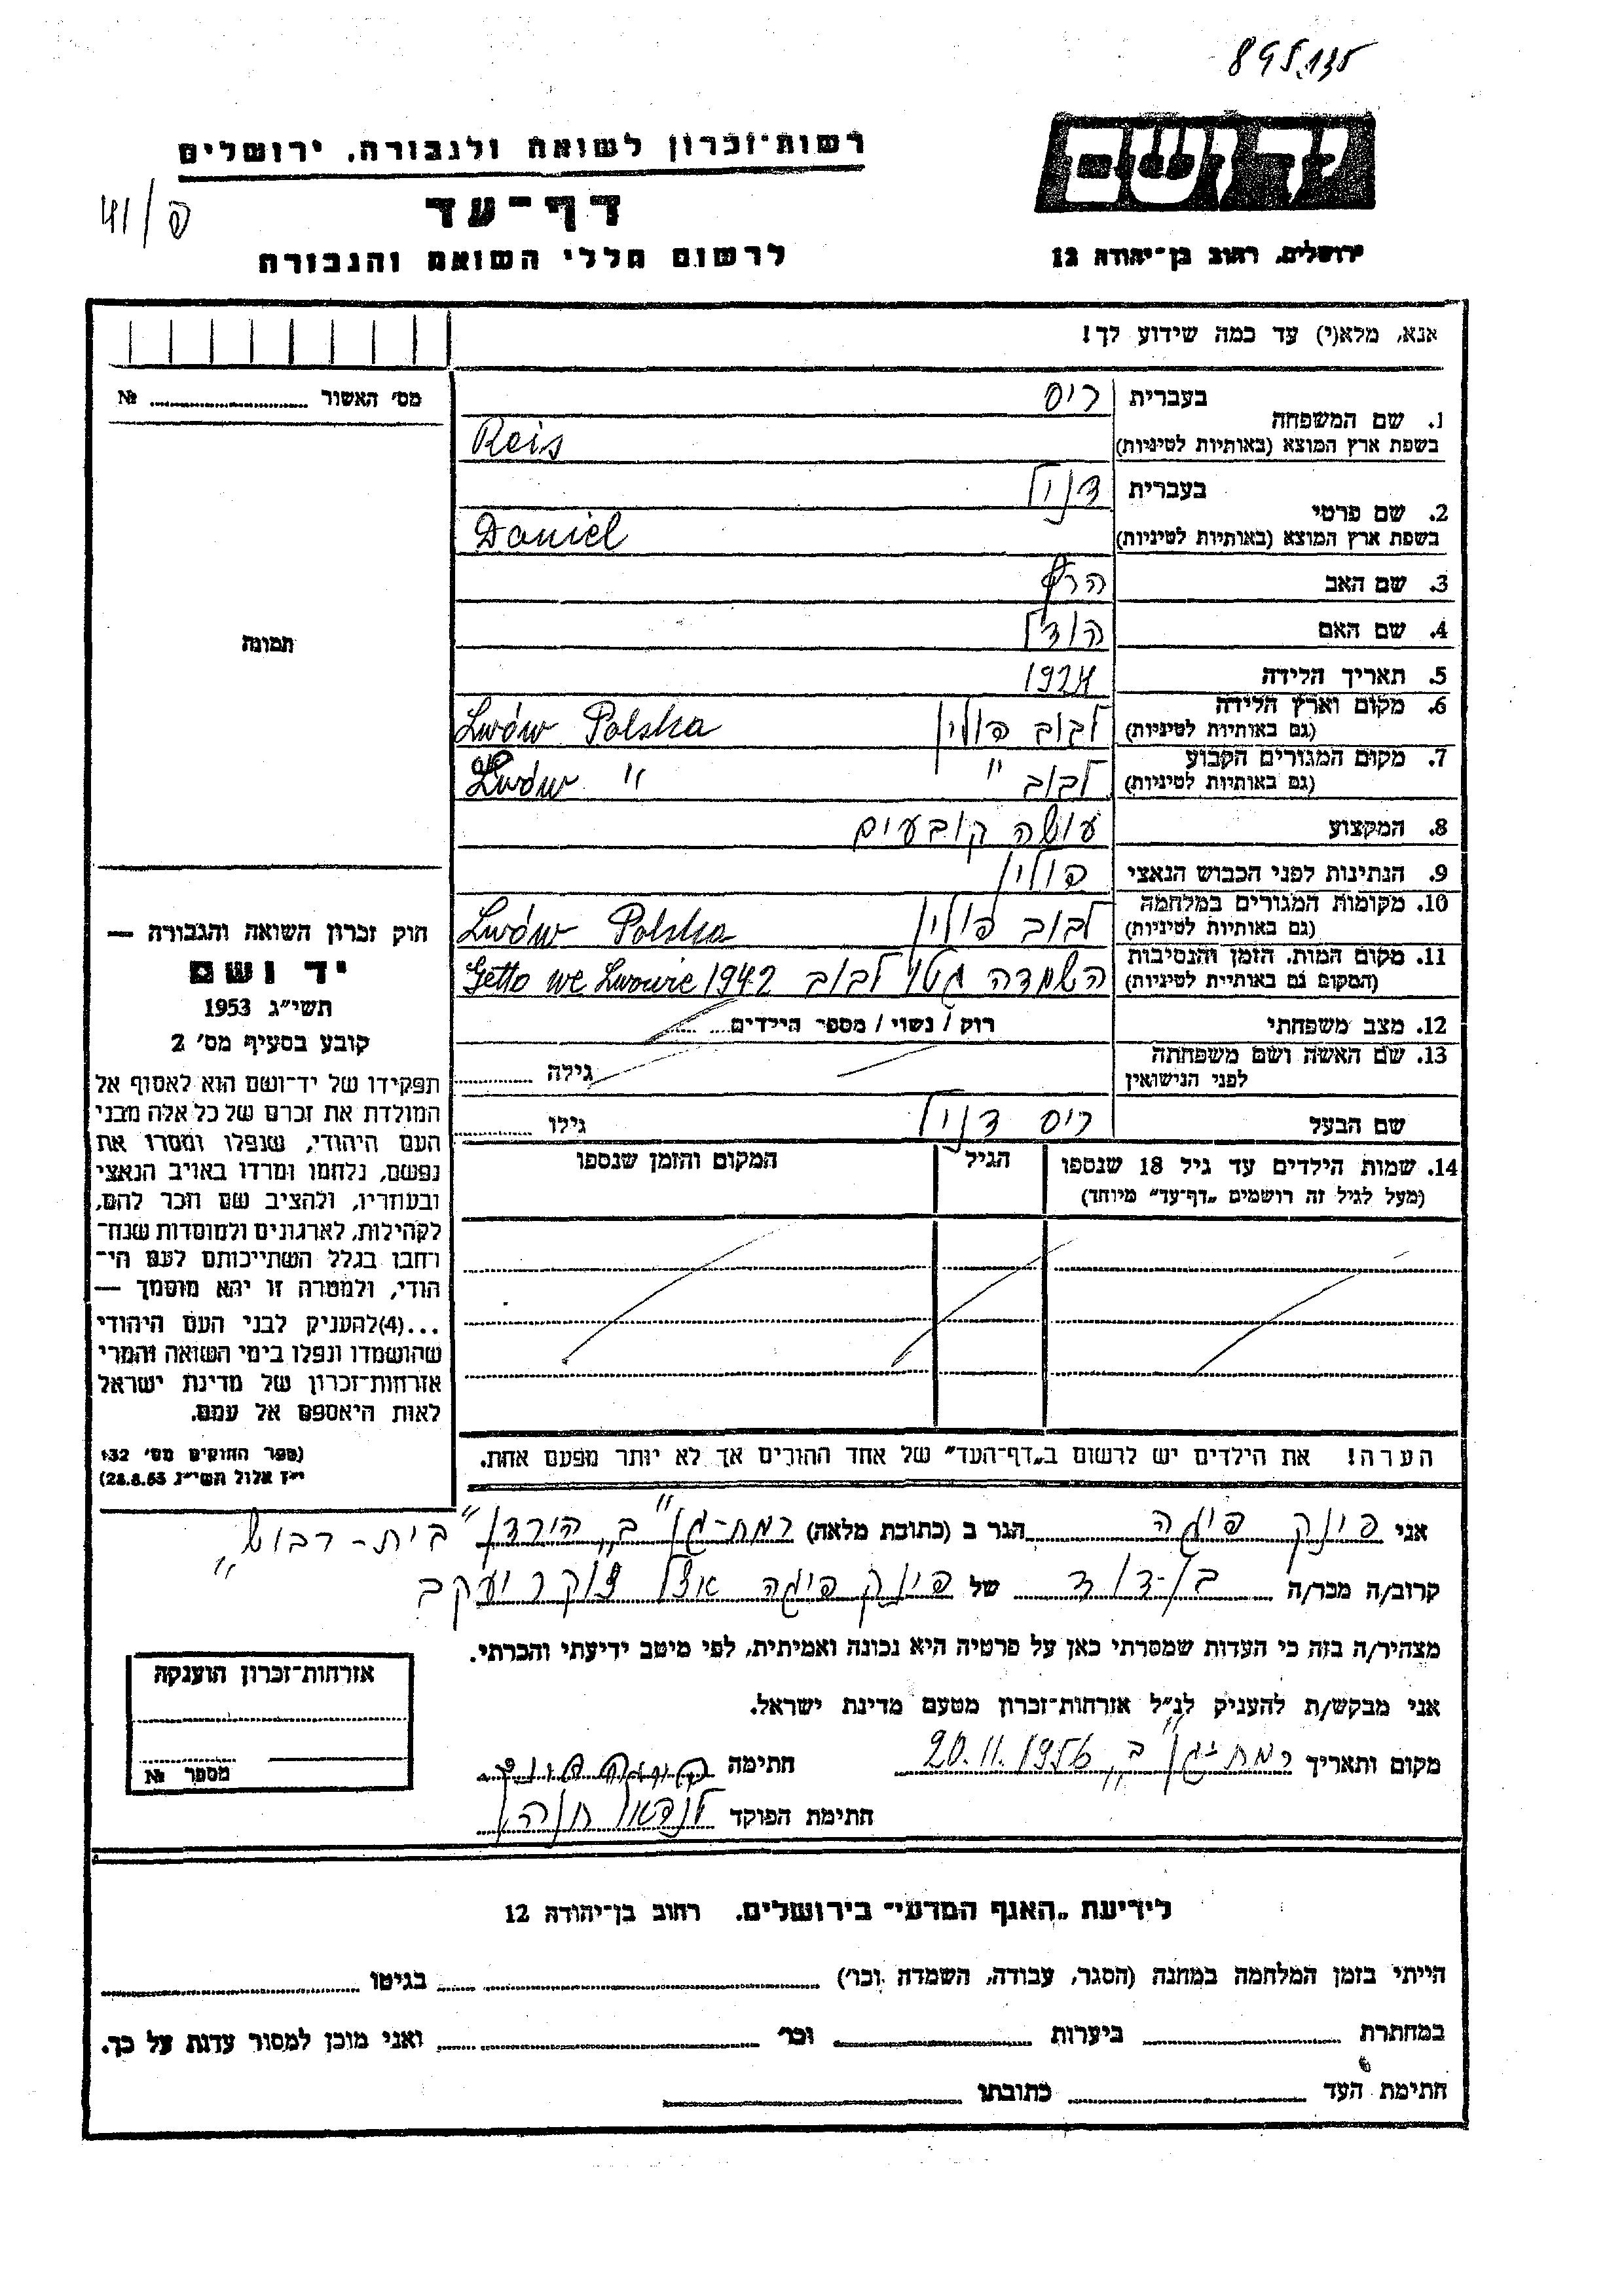 895135
רשות־זכרון לשואה ולגבורה, ירושלים
יד ושם
דף־עד
לרשום חללי השואה והגבורה
ירושלים, רחוב בן־יהודה 12
אנא, מלא(י) עד כמה שידוע לך!
מס׳ האשור ........ №
תמונה
1. שם המשפחה
בעברית ריס
בשפת ארץ המוצא (באותיות לטיניות) Reis
2. שם פרטי
בעברית דניאל
בשפת ארץ המוצא (באותיות לטיניות) Daniel
3. שם האב הרץ
4. שם האם הודל
5. תאריך הלידה 1924
6. מקום וארץ הלידה לבוב פולין Lwów Polska
(גם באותיות לטיניות)
7. מקום המגורים הקבוע לבוב " Lwów "
(גם באותיות לטיניות)
8. המקצוע עושה קובעים
9. הנתינות לפני הכבוש הנאצי פולין
10. מקומות המגורים במלחמה לבוב פולין Lwów Polska
(גם באותיות לטיניות)
11. מקום המות, הזמן והנסיבות השמדה גטו לבוב Getto we Lwowie 1942
(המקום גם באותיות לטיניות)
12. מצב משפחתי רוק / נשוי / מספר הילדים........
13. שם האשה ושם משפחתה לפני הנישואין גילה ........
שם הבעל ריס דניאל גילו ........
14. שמות הילדים עד גיל 18 שנספו
(מעל לגיל זה רושמים „דף־עד” מיוחד)
הגיל
המקום והזמן שנספו
הערה! את הילדים יש לרשום ב„דף־העד” של אחד ההורים אך לא יותר מפעם אחת.
חוק זכרון השואה והגבורה —
יד ושם
תשי״ג 1953
קובע בסעיף מס׳ 2
תפקידו של יד־ושם הוא לאסוף אל
המולדת את זכרם של כל אלה מבני
העם היהודי, שנפלו ומסרו את
נפשם, נלחמו ומרדו באויב הנאצי
ובעוזריו, ולהציב שם וזכר להם,
לקהילות, לארגונים ולמוסדות שנח־
רבו בגלל השתייכותם לעם הי־
הודי, ולמטרה זו יהא מוסמך —
...(4)להעניק לבני העם היהודי
שהושמדו ונפלו בימי השואה והמרי
אזרחות־זכרון של מדינת ישראל
לאות היאספם אל עמם.
(ספר החוקים מס׳ 132
י״ז אלול תשי״ג 28.8.53)
אני פינק פיגה הגר ב (כתובת מלאה) רמת-גן „ב” הירדן
קרוב/ה מכר/ה בן-דוד של פינק פיגה אצל צוקר יעקב
מצהיר/ה בזה כי העדות שמסרתי כאן על פרטיה היא נכונה ואמיתית, לפי מיטב ידיעתי והכרתי.
אני מבקש/ת להעניק לנ״ל אזרחות־זכרון מטעם מדינת ישראל.
מקום ותאריך רמת-גן „ב” 20.11.1956 חתימה
חתימת הפוקד
אזרחות־זכרון הוענקה
מספר №
לידיעת „האגף המדעי” בירושלים, רחוב בן־יהודה 12
הייתי בזמן המלחמה במחנה (הסגר, עבודה, השמדה וכר׳) ........ בגיטו ........
במחתרת ........ ביערות ........ וכר׳ ........ ואני מוכן למסור עדות על כך.
חתימת העד ........ כתובתו ........